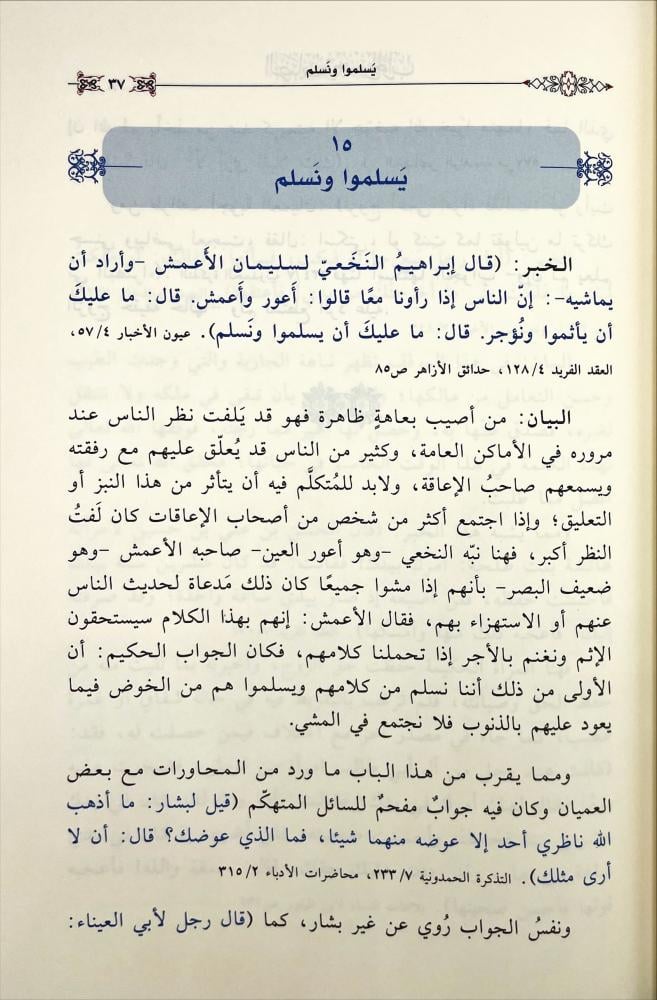 يَسلموا ونَسلم
٣٧
١٥
يَسلموا ونَسلم
الخبر: (قال إبراهيمُ النَخَعيّ لسليمان الأعمش -وأراد أن
يماشيه-: إنّ الناس إذا رأونا معًا قالوا: أعور وأعمش. قال: ما عليكَ
أن يأثموا ونُؤجر. قال: ما عليكَ أن يسلموا ونَسلم). عيون الأخبار ٥٧/٤،
العقد الفريد ١٢٨/٤، حدائق الأزاهر ص٨٥
البيان: من أصيب بعاهةٍ ظاهرة فهو قد يَلفت نظر الناس عند
مروره في الأماكن العامة، وكثير من الناس قد يُعلّق عليهم مع رفقته
ويسمعهم صاحبُ الإعاقة، ولابد للمُتكلَّم فيه أن يتأثر من هذا النبز أو
التعليق؛ وإذا اجتمع أكثر من شخص من أصحاب الإعاقات كان لَفتُ
النظر أكبر، فهنا نبّه النخعي -وهو أعور العين- صاحبه الأعمش -وهو
ضعيف البصر- بأنهم إذا مشوا جميعًا كان ذلك مَدعاة لحديث الناس
عنهم أو الاستهزاء بهم، فقال الأعمش: إنهم بهذا الكلام سيستحقون
الإثم ونغنم بالأجر إذا تحملنا كلامهم، فكان الجواب الحكيم: أن
الأولى من ذلك أننا نسلم من كلامهم ويسلموا هم من الخوض فيما
يعود عليهم بالذنوب فلا نجتمع في المشي.
ومما يقرب من هذا الباب ما ورد من المحاورات مع بعض
العميان وكان فيه جوابٌ مفحمٌ للسائل المتهكّم (قيل لبشار: ما أذهب
الله ناظري أحد إلا عوضه منهما شيئا، فما الذي عوضك؟ قال: أن لا
أرى مثلك). التذكرة الحمدونية ٢٣٣/٧، محاضرات الأدباء ٣١٥/٢
ونفسُ الجواب رُوي عن غير بشار، كما (قال رجل لأبي العيناء: